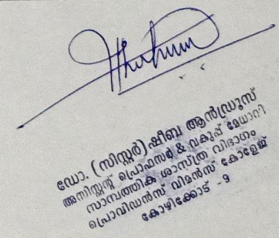 ഡോ. (സിസ്റ്റർ)ഷീബ ആൻഡ്രൂസ്
അസിസ്റ്റന്റ് പ്രൊഫസർ & വകുപ്പ് മേധാവി
സാമ്പത്തിക ശാസ്ത്ര വിഭാഗം
പ്രൊവിഡൻസ് വിമൻസ് കോളേജ്
കോഴിക്കോട് - 9